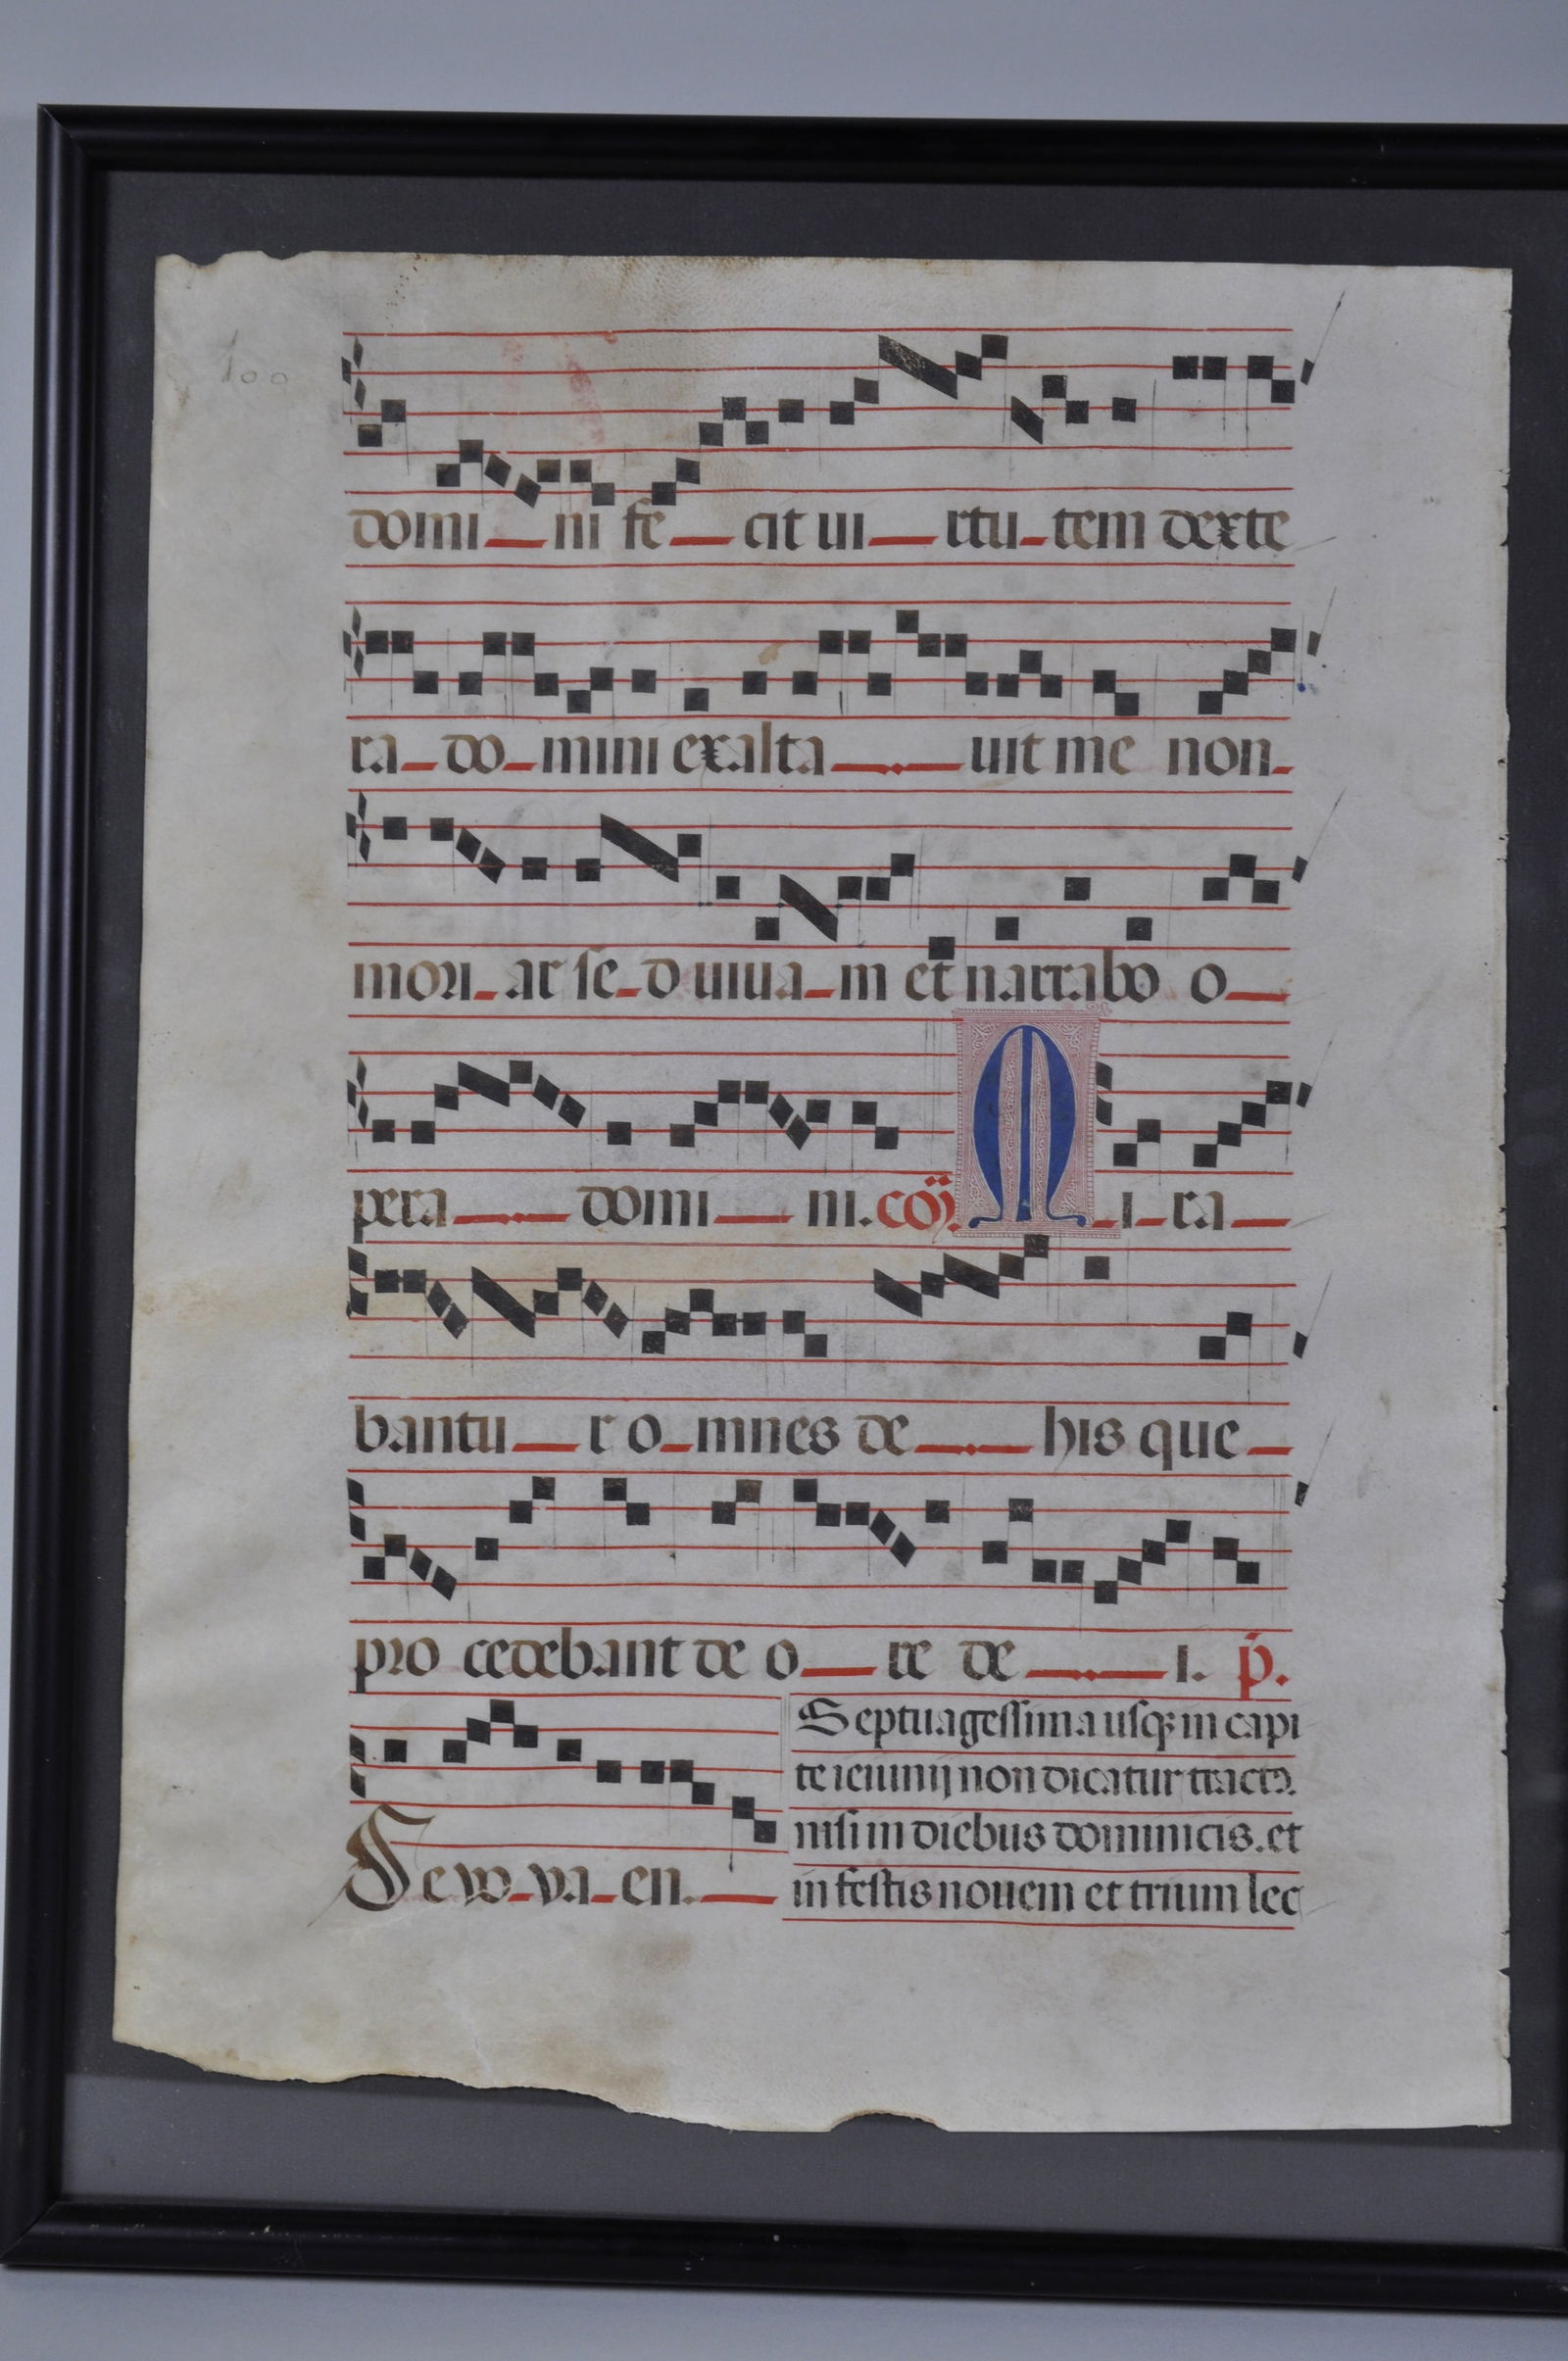 100
domi ni fe cit ui rtu tem dexte
ra do mini exalta uit me non
mori ar se d uiua m et narrabo o
pera domi ni. cōį. M i ra
bantu r o mnes de his que
pro cedebant de o re de i. p̄.
Septuagessima usqȝ in capi
te ieiunij non dicatur tractꝰ.
nisi in diebus dominicis. et
Se vo va en. in festis nouem et trium lec